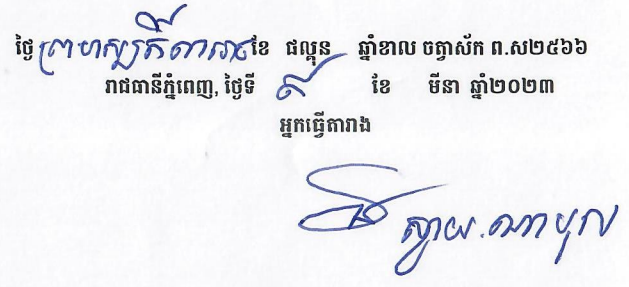 ថ្ងៃព្រហស្បតិ៍ ខែ ផល្គុន ឆ្នាំខាល ចត្វាស័ក ព.ស២៥៦៦
រាជធានីភ្នំពេញ, ថ្ងៃទី ៩ ខែ មីនា ឆ្នាំ២០២៣
អ្នកធ្វើតារាង
ស្វាយ.ណាបុល